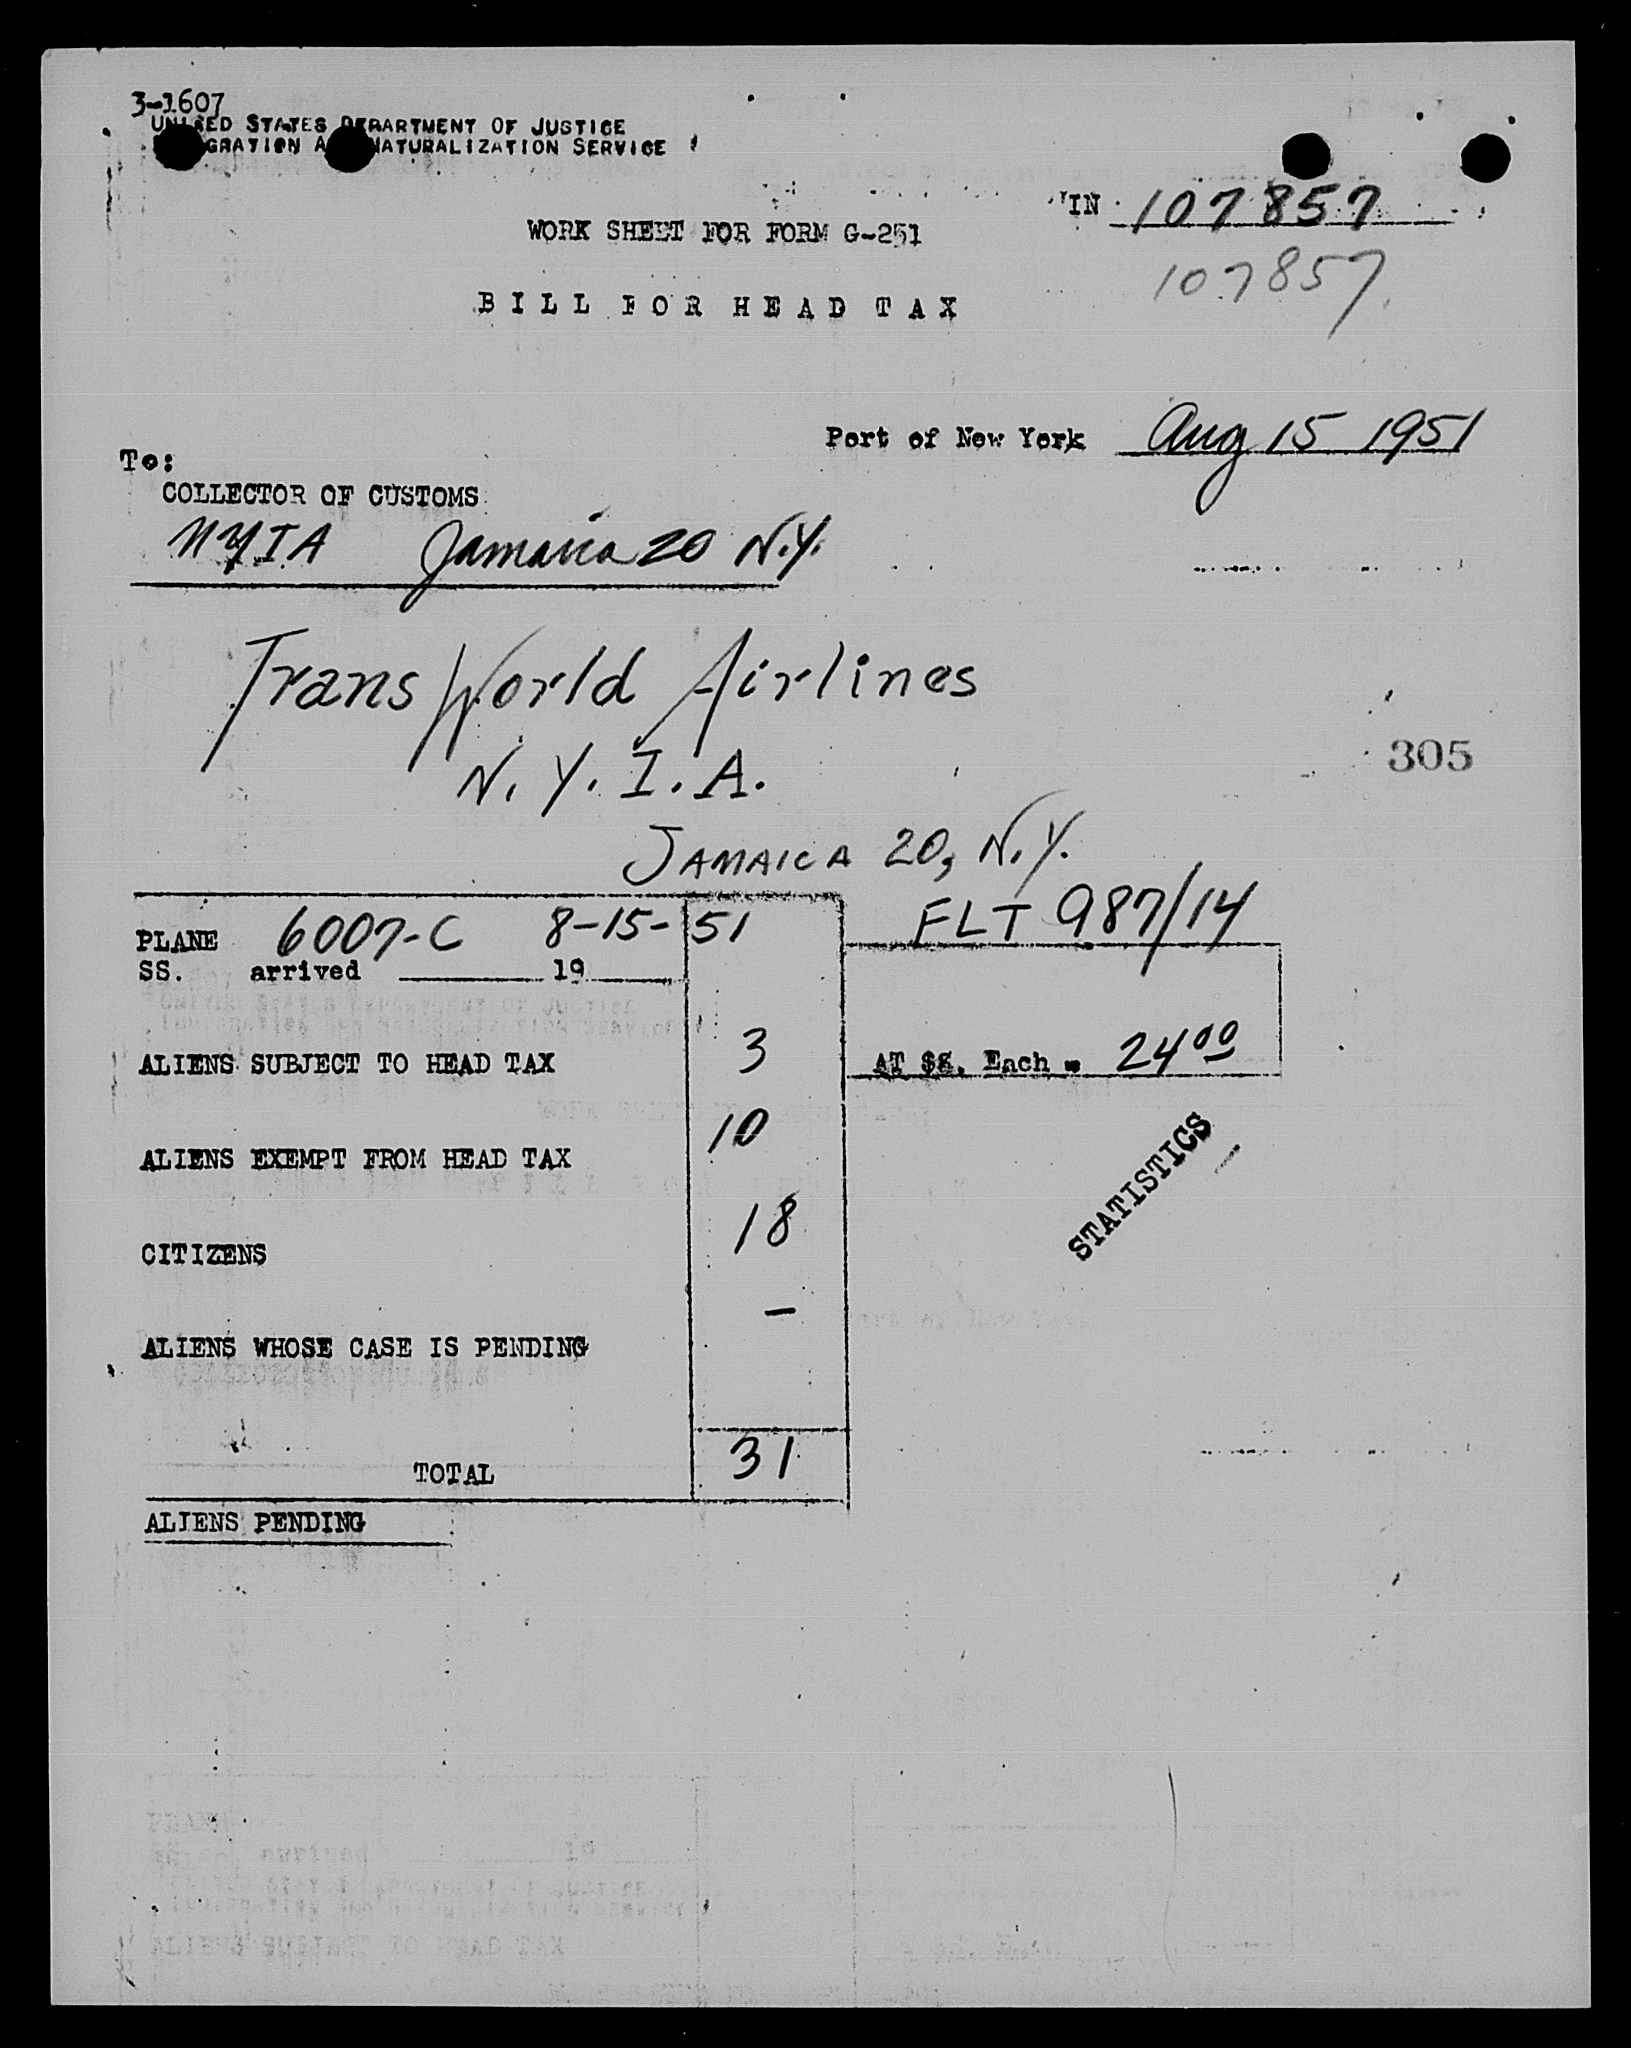 3-1607
UNITED STATES DEPARTMENT OF JUSTICE
IMMIGRATION AND NATURALIZATION SERVICE
IN 107857
WORK SHEET FOR FORM G-251
107857
BILL FOR HEAD TAX
Port of New York Aug 15 1951
To:
COLLECTOR OF CUSTOMS
NYIA Jamaica 20 N.Y.
Trans World Airlines
N.Y.I.A.
305
JAMAICA 20, N.Y.
FLT 987/14
PLANE 6007-C 8-15-51
SS. arrived 19
ALIENS SUBJECT TO HEAD TAX 3 AT $8. Each = 24 00
ALIENS EXEMPT FROM HEAD TAX 10
STATISTICS
CITIZENS 18
ALIENS WHOSE CASE IS PENDING -
TOTAL 31
ALIENS PENDING